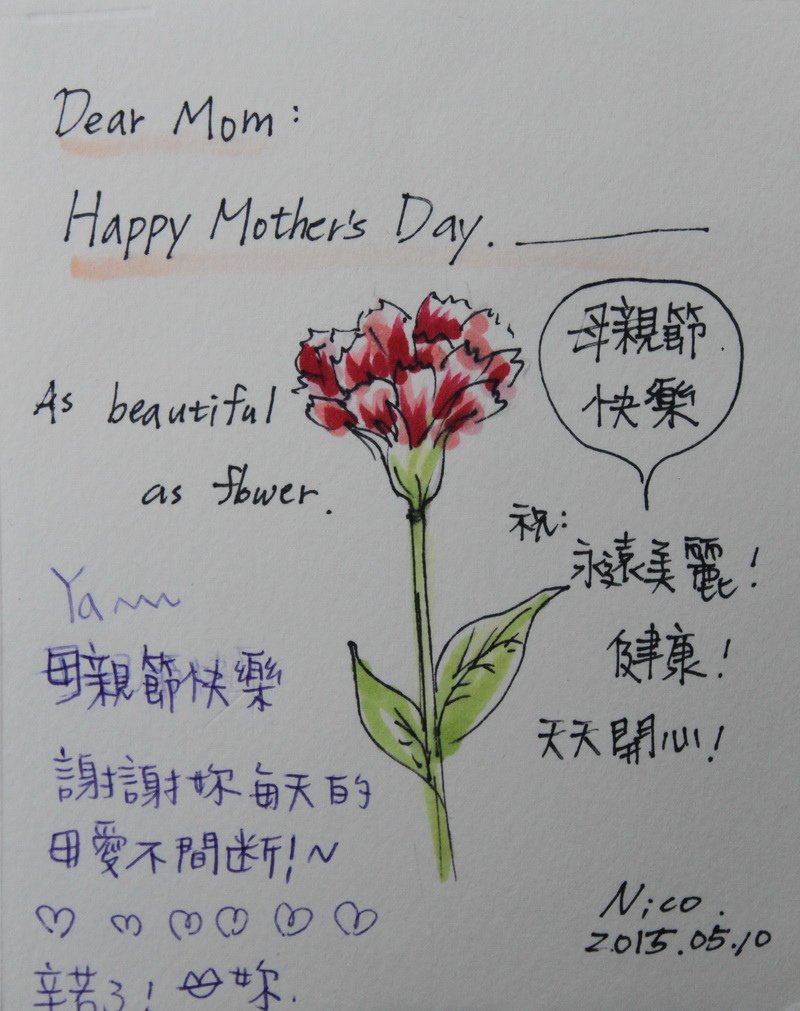 Dear Mom:
Happy Mother's Day.
母親節
快樂
As beautiful
as flower.
祝:
永遠美麗!
健康!
天天開心!
Ya
母親節快樂
謝謝妳每天的
母愛不間斷!~
辛苦了! 妳.
Nico.
2015.05.10